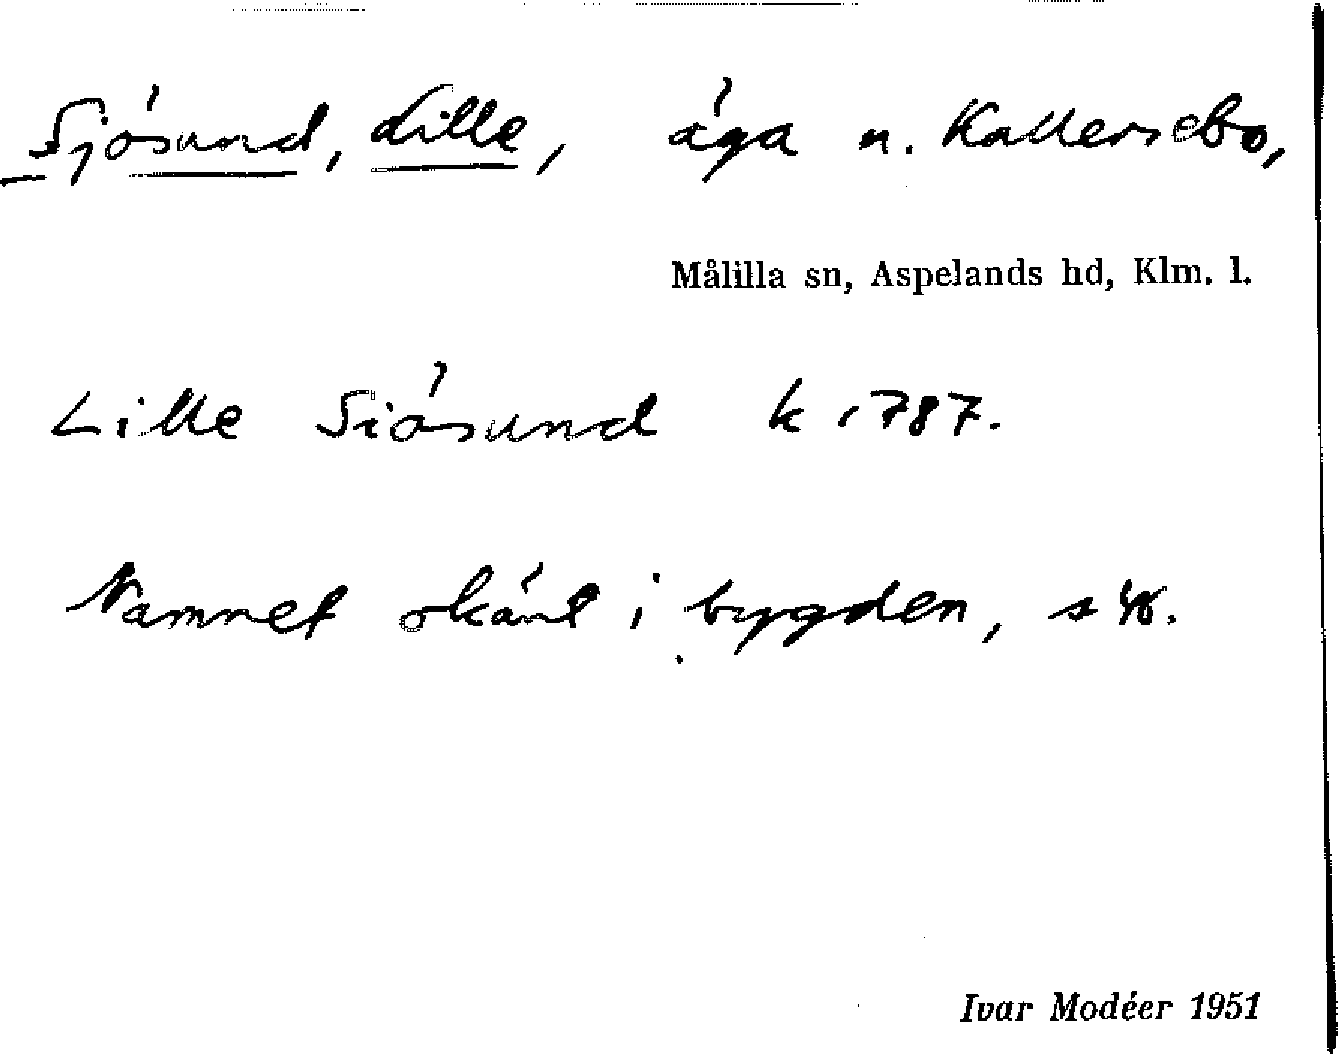 Sjösund, Lille, äga n. Kallersebo,
Målilla sn, Aspelands hd, Klm. l.
Lille Siösund k 1787.
Namnet okänt i bygden,
Ivar Modéer 1951